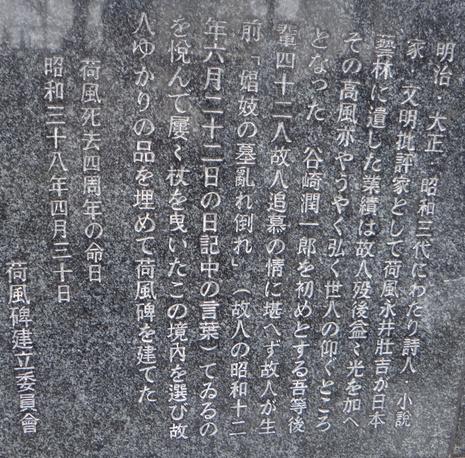 明治・大正・昭和三代にわたり詩人・小説
家・文明批評家として荷風永井壯吉が日本
藝林に遺した業績は故人歿後益々光を加へ
その高風亦やうやく弘く世人の仰ぐところ
となった 谷崎潤一郎を初めとする吾等後
輩四十二人故人追慕の情に堪へず故人が生
前「娼妓の墓亂れ倒れ」（故人の昭和十二
年六月二十二日の日記中の言葉）てゐるの
を悦んで屢々杖を曳いたこの境内を選び故
人ゆかりの品を埋めて荷風碑を建てた
荷風死去四周年の命日
昭和三十八年四月三十日
荷風碑建立委員會